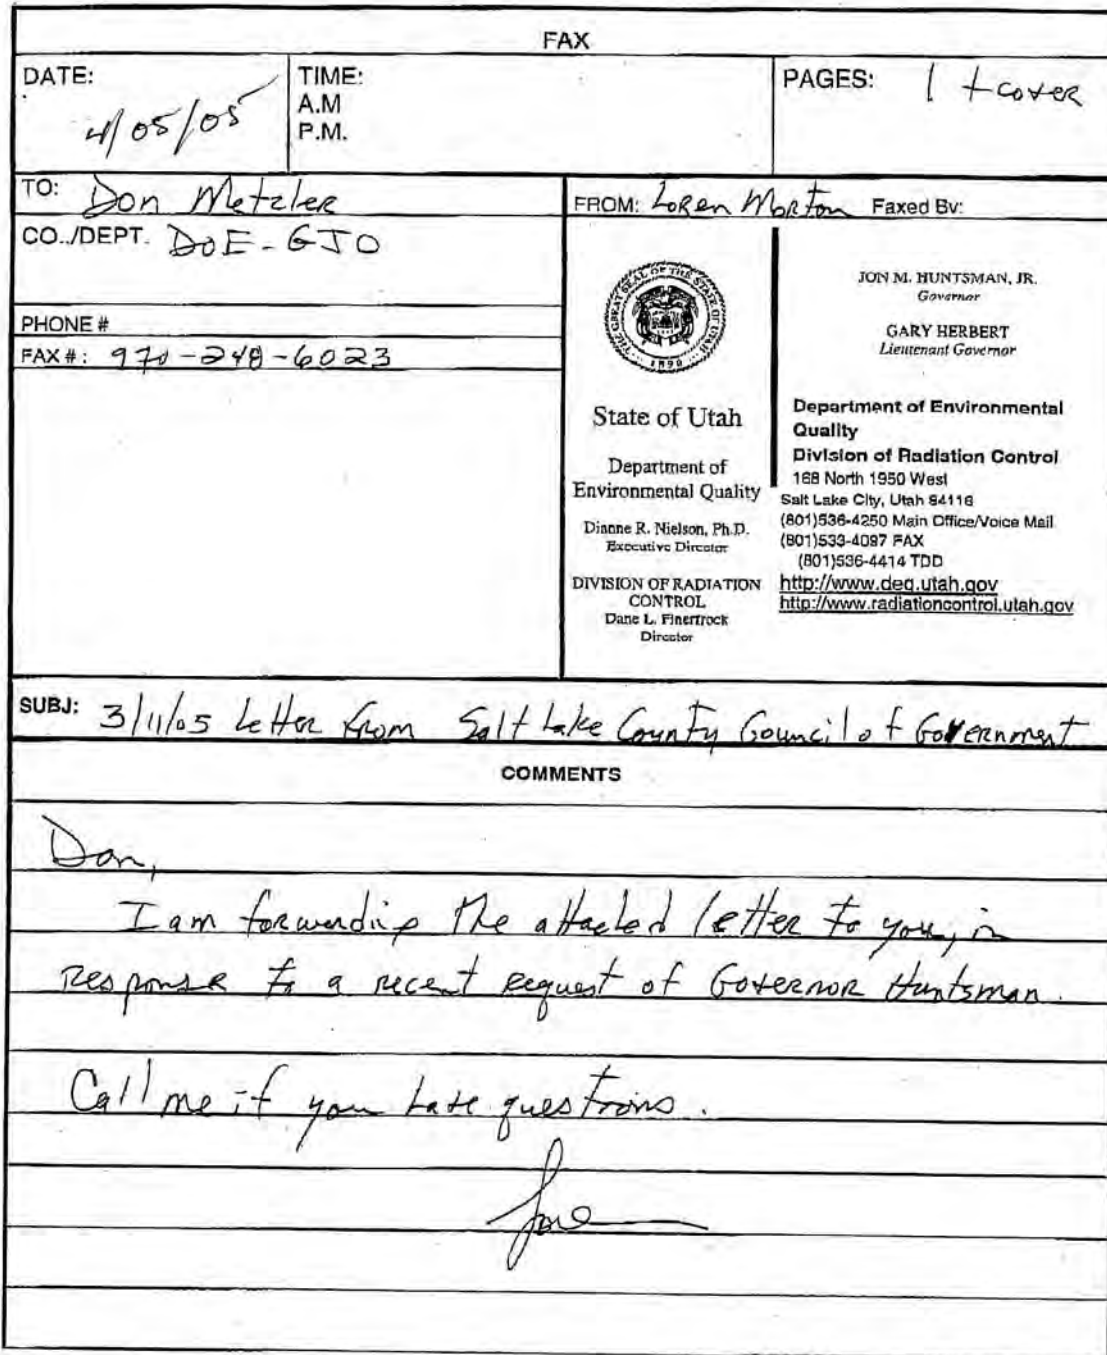 FAX
DATE:
4/05/05
TIME:
A.M
P.M.
PAGES: 1 + cover
TO: Don Metzler
CO../DEPT. DOE-GJO
PHONE #
FAX #: 970-248-6023
FROM: Loren Morton Faxed By:
THE GREAT SEAL OF THE STATE OF UTAH
1896
State of Utah
Department of
Environmental Quality
Dianne R. Nielson, Ph.D.
Executive Director
DIVISION OF RADIATION
CONTROL
Dane L. Finerfrock
Director
JON M. HUNTSMAN, JR.
Governor
GARY HERBERT
Lieutenant Governor
Department of Environmental
Quality
Division of Radiation Control
168 North 1950 West
Salt Lake City, Utah 84116
(801)536-4250 Main Office/Voice Mail
(801)533-4097 FAX
(801)536-4414 TDD
http://www.deq.utah.gov
http://www.radiationcontrol.utah.gov
SUBJ: 3/11/05 Letter from Salt Lake County Council of Government
COMMENTS
Don,
I am forwarding the attached letter to you, in
response to a recent request of Governor Huntsman.
Call me if you have questions.
Loren